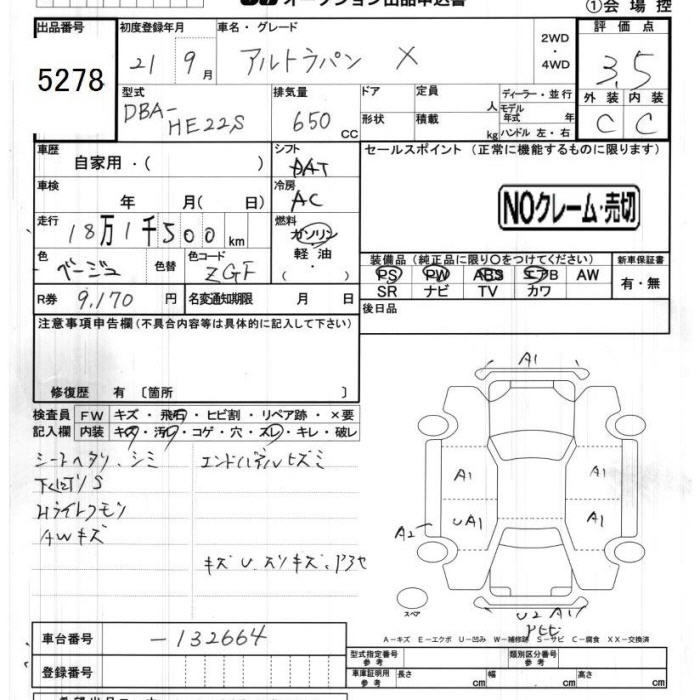 オークション出品申込書
①会場控
出品番号 初度登録年月 車名・グレード 2WD・4WD 評価点
5278 21 9月 アルトラパン X 3.5
型式 排気量 ドア 定員 人 ディーラー・並行 外装 内装
DBA-HE22S 650 CC 形状 積載 kg モデル年式 年 ハンドル 左・右 C C
車歴 自家用・( ) シフト DAT セールスポイント(正常に機能するものに限ります)
車検 年 月( 日) 冷房 AC NOクレーム・売切
走行 18万1千500km 燃料 ガソリン 軽油 ( ・ )
色 ベージュ 色替 色コード ZGF 装備品(純正品に限り〇をつけてください) 新車保証書
PS PW ABS エアB AW 有・無
R券 9,170円 名変通知期限 月 日 SR ナビ TV カワ
後日品
注意事項申告欄(不具合内容等は具体的に記入して下さい)
修復歴 有〔箇所 〕
検査員記入欄 FW キズ・飛石・ヒビ割・リペア跡・×要
内装 キズ・汚れ・コゲ・穴・スレ・キレ・破レ
シートヘタリ、シミ エンドパネルヒズミ
下廻りS
Hライトクモリ
AWキズ
A1
A1 A1
A2 UA1 A1
スペア U2 A1
A-キズ E-エクボ U-凹み W-補修跡 S-サビ C-腐食 XX-交換済
車台番号 -132664
型式指定番号 参考 類別区分番号 参考
登録番号 車庫証明用 参考 長さ cm 幅 cm 高さ cm